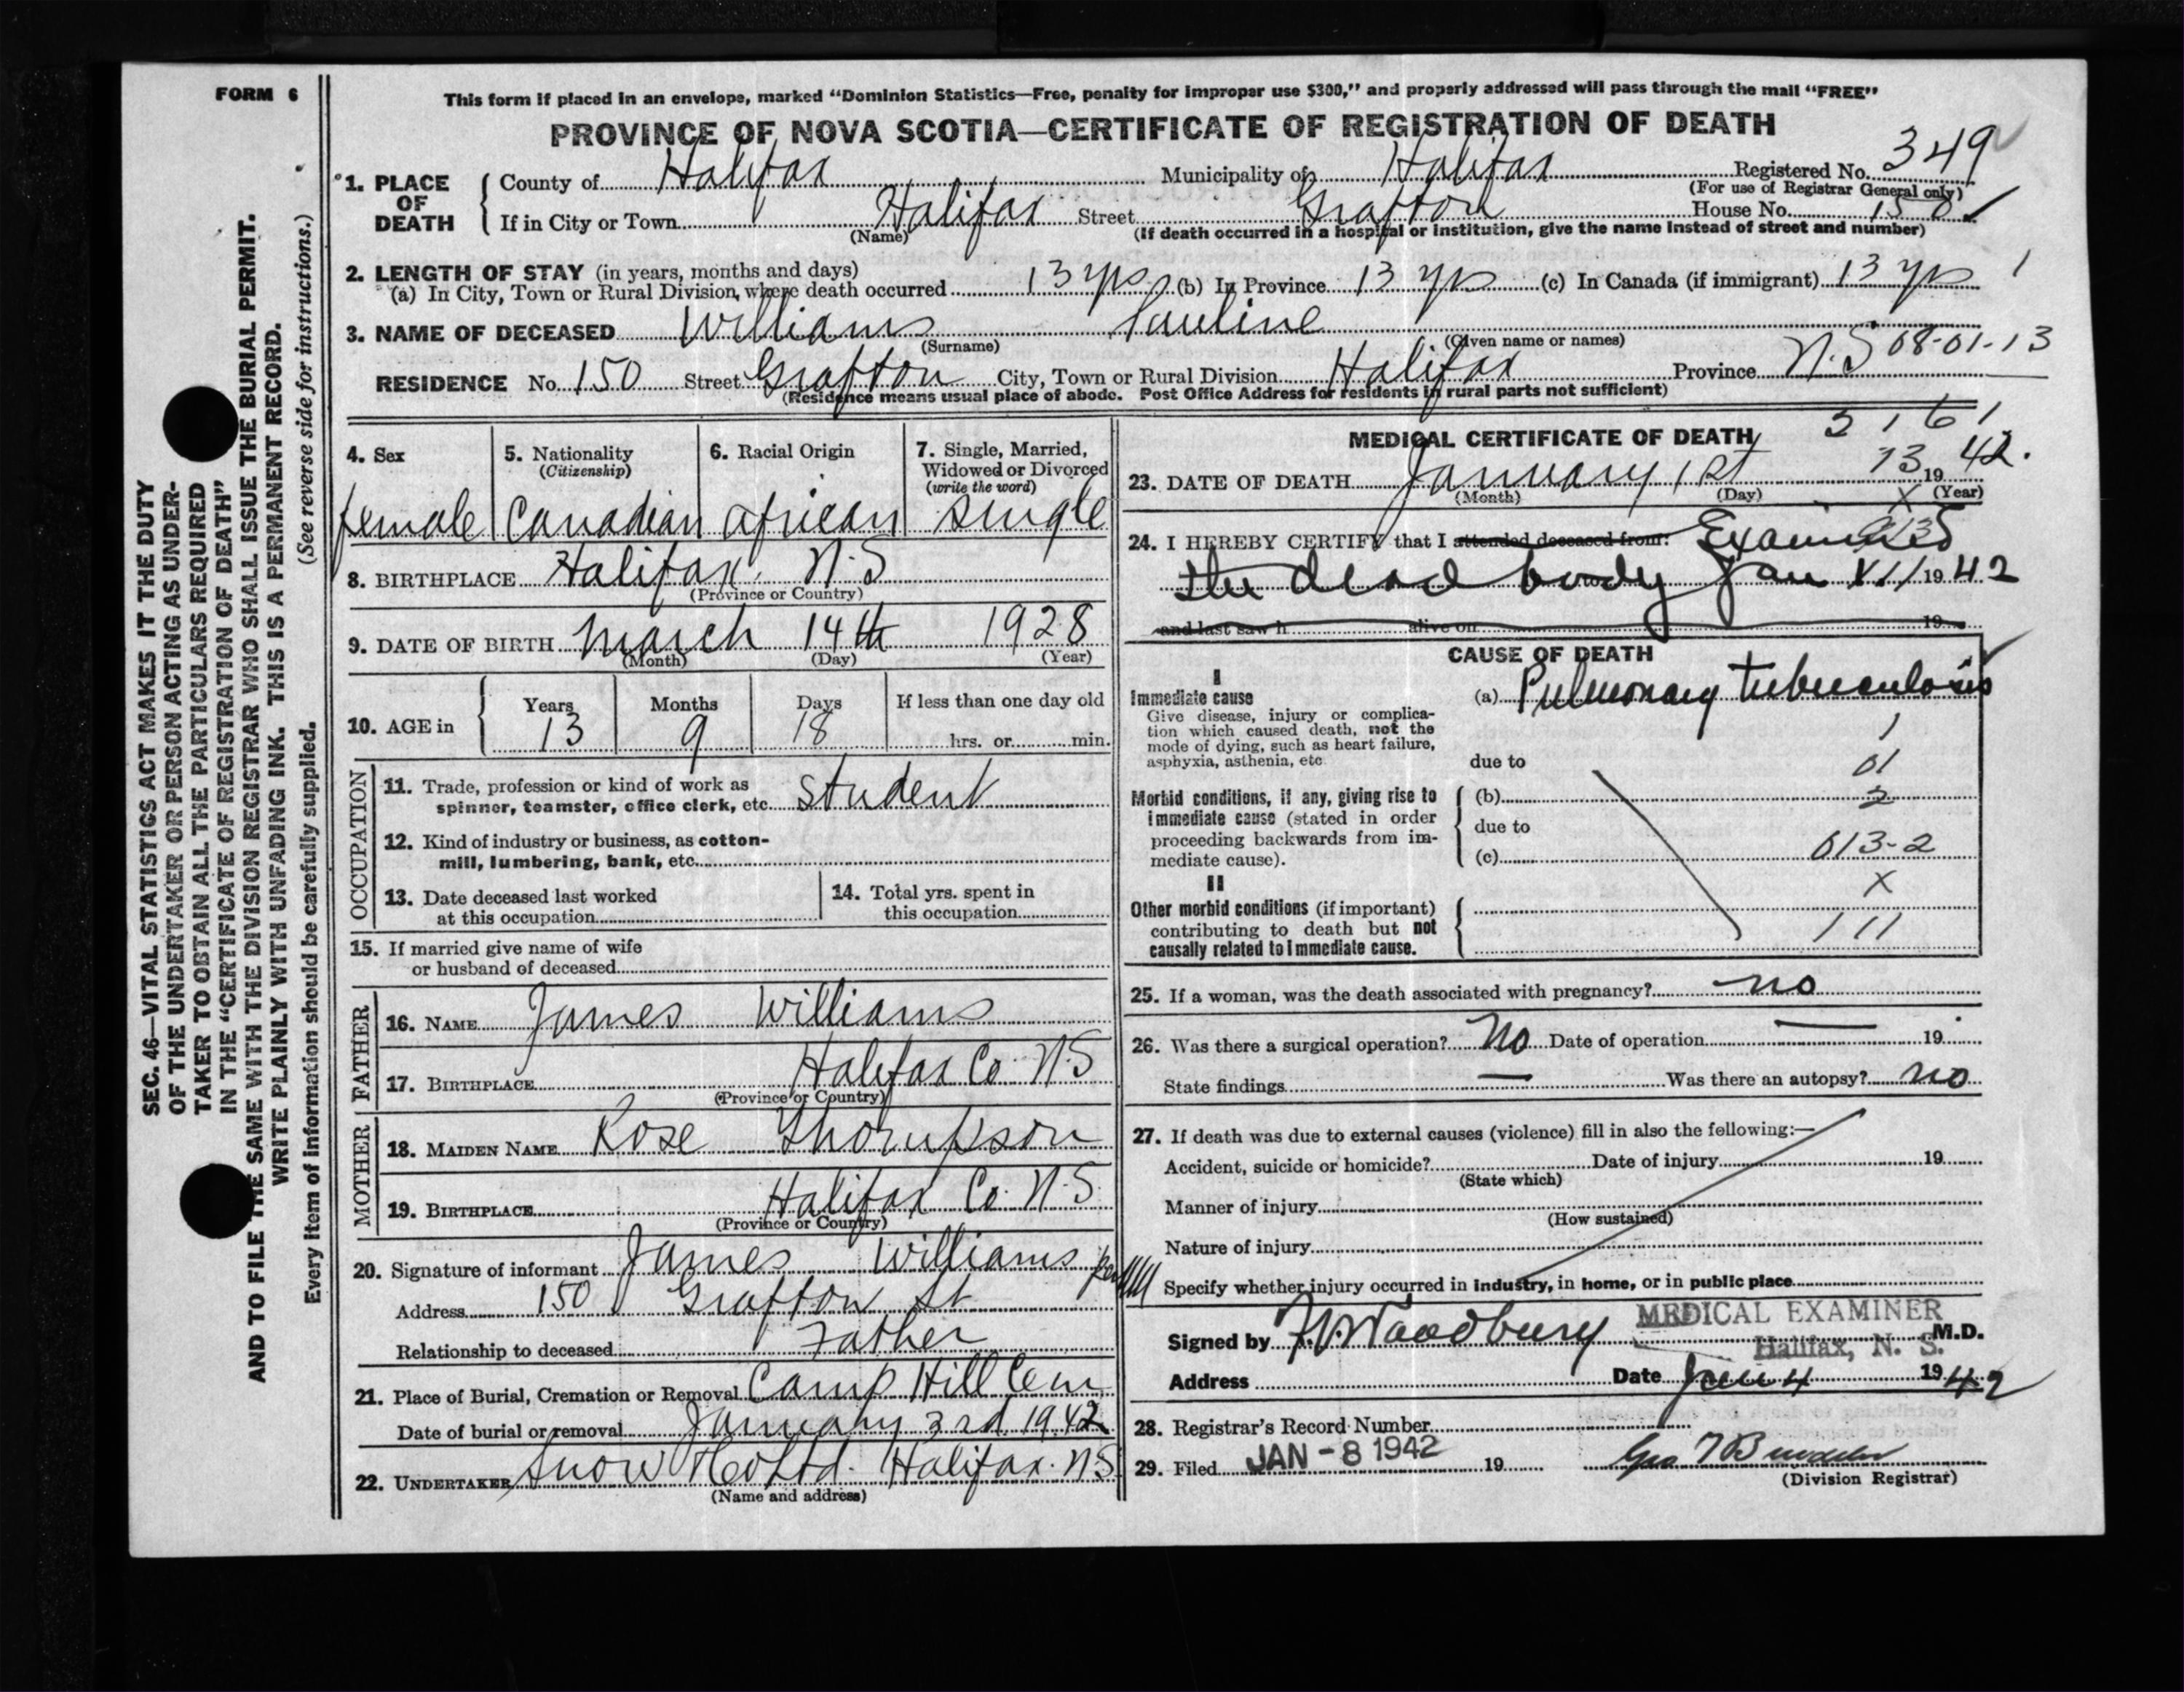 FORM 6
This form if placed in an envelope, marked “Dominion Statistics—Free, penalty for improper use $300,” and properly addressed will pass through the mail “FREE”
PROVINCE OF NOVA SCOTIA—CERTIFICATE OF REGISTRATION OF DEATH
1. PLACE OF DEATH County of Halifax Municipality of Halifax Registered No. 349
(For use of Registrar General only)
If in City or Town Halifax Street Grafton House No. 150
(Name) (If death occurred in a hospital or institution, give the name instead of street and number)
2. LENGTH OF STAY (in years, months and days)
(a) In City, Town or Rural Division, where death occurred 13 yrs (b) In Province 13 yrs (c) In Canada (if immigrant) 13 yrs 1
3. NAME OF DECEASED Williams Pauline
(Surname) (Given name or names)
RESIDENCE No. 150 Street Grafton City, Town or Rural Division Halifax Province N.S 08-01-13
(Residence means usual place of abode. Post Office Address for residents in rural parts not sufficient)
4. Sex
female
5. Nationality
(Citizenship)
Canadian
6. Racial Origin
african
7. Single, Married,
Widowed or Divorced
(write the word)
single
8. BIRTHPLACE Halifax, N.S
(Province or Country)
9. DATE OF BIRTH March 14th 1928
(Month) (Day) (Year)
10. AGE in Years Months Days If less than one day old
13 9 18 hrs. or min.
OCCUPATION
11. Trade, profession or kind of work as
spinner, teamster, office clerk, etc. student
12. Kind of industry or business, as cotton-
mill, lumbering, bank, etc.
13. Date deceased last worked
at this occupation
14. Total yrs. spent in
this occupation
15. If married give name of wife
or husband of deceased
FATHER
16. NAME James Williams
17. BIRTHPLACE Halifax Co. N.S
(Province or Country)
MOTHER
18. MAIDEN NAME Rose Thompson
19. BIRTHPLACE Halifax Co. N.S.
(Province or Country)
20. Signature of informant James Williams
Address 150 Grafton St
Relationship to deceased Father
21. Place of Burial, Cremation or Removal Camp Hill Cem
Date of burial or removal January 3rd 1942
22. UNDERTAKER Snow & Co Ltd. Halifax. N.S
(Name and address)
MEDICAL CERTIFICATE OF DEATH
23. DATE OF DEATH January 1st 1942.
(Month) (Day) (Year)
24. I HEREBY CERTIFY that I attended deceased from: Examined
the dead body Jan 1942
and last saw h alive on 19
CAUSE OF DEATH
I
Immediate cause
Give disease, injury or complica-
tion which caused death, not the
mode of dying, such as heart failure,
asphyxia, asthenia, etc.
(a) Pulmonary tuberculosis
1
due to 01
Morbid conditions, if any, giving rise to
immediate cause (stated in order
proceeding backwards from im-
mediate cause).
(b) 2
due to
(c) 013-2
II X
Other morbid conditions (if important)
contributing to death but not
causally related to immediate cause.
111
25. If a woman, was the death associated with pregnancy? no
26. Was there a surgical operation? No Date of operation — 19
State findings — Was there an autopsy? no
27. If death was due to external causes (violence) fill in also the following:—
Accident, suicide or homicide? Date of injury 19
(State which)
Manner of injury
(How sustained)
Nature of injury
Specify whether injury occurred in industry, in home, or in public place
Signed by Woodbury MEDICAL EXAMINER M.D.
Halifax, N. S.
Address Date Jan 4 1942
28. Registrar’s Record Number
29. Filed JAN -8 1942 19
(Division Registrar)
SEC. 46—VITAL STATISTICS ACT MAKES IT THE DUTY
OF THE UNDERTAKER OR PERSON ACTING AS UNDER-
TAKER TO OBTAIN ALL THE PARTICULARS REQUIRED
IN THE “CERTIFICATE OF REGISTRATION OF DEATH”
AND TO FILE THE SAME WITH THE DIVISION REGISTRAR WHO SHALL ISSUE THE BURIAL PERMIT.
WRITE PLAINLY WITH UNFADING INK. THIS IS A PERMANENT RECORD.
Every item of information should be carefully supplied. (See reverse side for instructions.)